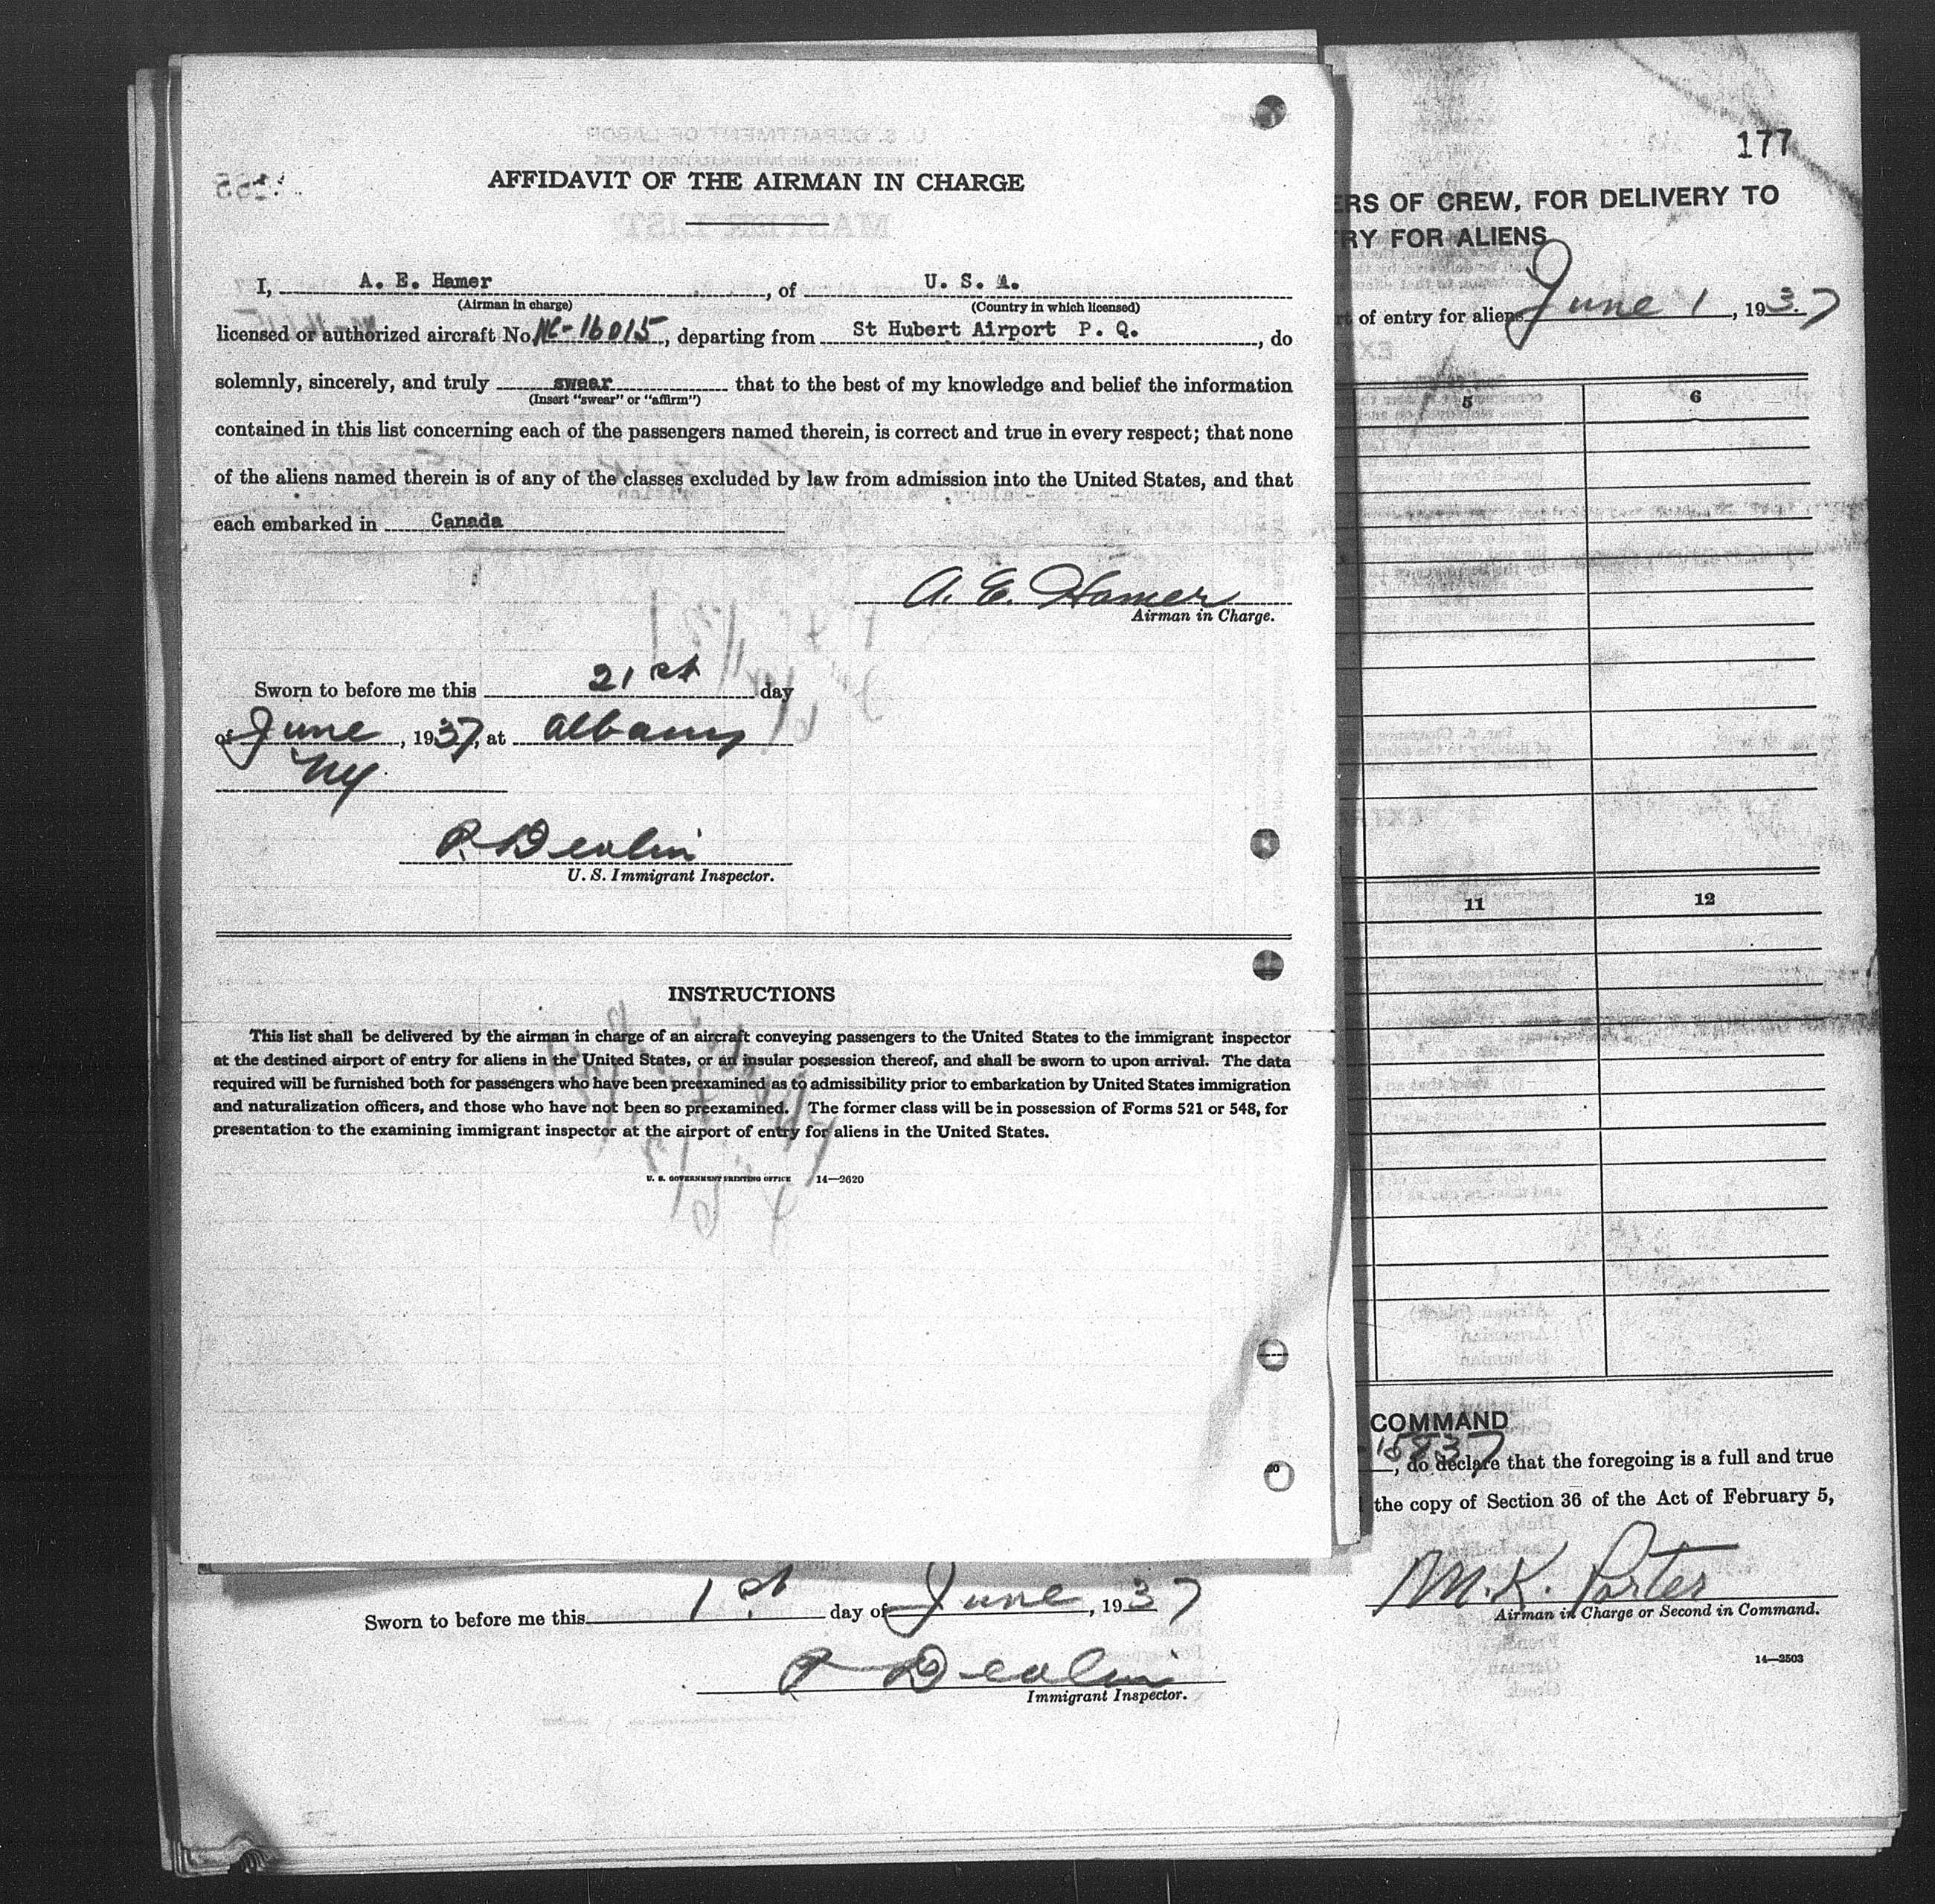 AFFIDAVIT OF THE AIRMAN IN CHARGE
I, A. E. Hamer, of U. S. A.
(Airman in charge) (Country in which licensed)
licensed or authorized aircraft No NC-16015, departing from St Hubert Airport P. Q., do
solemnly, sincerely, and truly swear that to the best of my knowledge and belief the information
(Insert "swear" or "affirm")
contained in this list concerning each of the passengers named therein, is correct and true in every respect; that none
of the aliens named therein is of any of the classes excluded by law from admission into the United States, and that
each embarked in Canada
A. E. Hamer
Airman in Charge.
Sworn to before me this 21st day
of June, 1937, at Albany
NY
P Devlin
U. S. Immigrant Inspector.
INSTRUCTIONS
This list shall be delivered by the airman in charge of an aircraft conveying passengers to the United States to the immigrant inspector
at the destined airport of entry for aliens in the United States, or an insular possession thereof, and shall be sworn to upon arrival. The data
required will be furnished both for passengers who have been preexamined as to admissibility prior to embarkation by United States immigration
and naturalization officers, and those who have not been so preexamined. The former class will be in possession of Forms 521 or 548, for
presentation to the examining immigrant inspector at the airport of entry for aliens in the United States.
U. S. GOVERNMENT PRINTING OFFICE 14—2620
177
ERS OF CREW, FOR DELIVERY TO
RY FOR ALIENS
of entry for aliens June 1, 1937
5 6
11 12
COMMAND
15837
, do declare that the foregoing is a full and true
the copy of Section 36 of the Act of February 5,
M. K. Porter
Airman in Charge or Second in Command.
14—2503
Sworn to before me this 1st day of June, 1937
P Devlin
Immigrant Inspector.